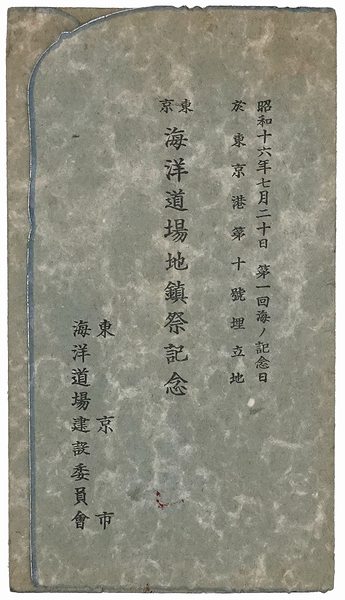 昭和十六年七月二十日 第一回海ノ記念日
於東京港第十號埋立地
東京 海洋道場地鎮祭記念
東京市
海洋道場建設委員會